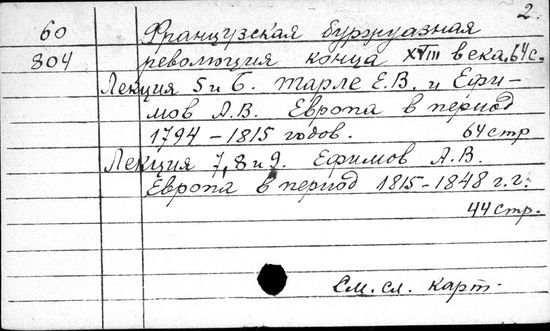 2.
60 Французская буржуазная
804 революция конца XVIII века. 64 с.
Лекция 5 и 6. Тарле Е.В. и Ефи-
мов А.В. Европа в период
1794 - 1815 годов. 64 стр
Лекция 7, 8 и 9. Ефимов А.В.
Европа в период 1815 - 1848 г.г.
44 стр.
См. сл. карт.